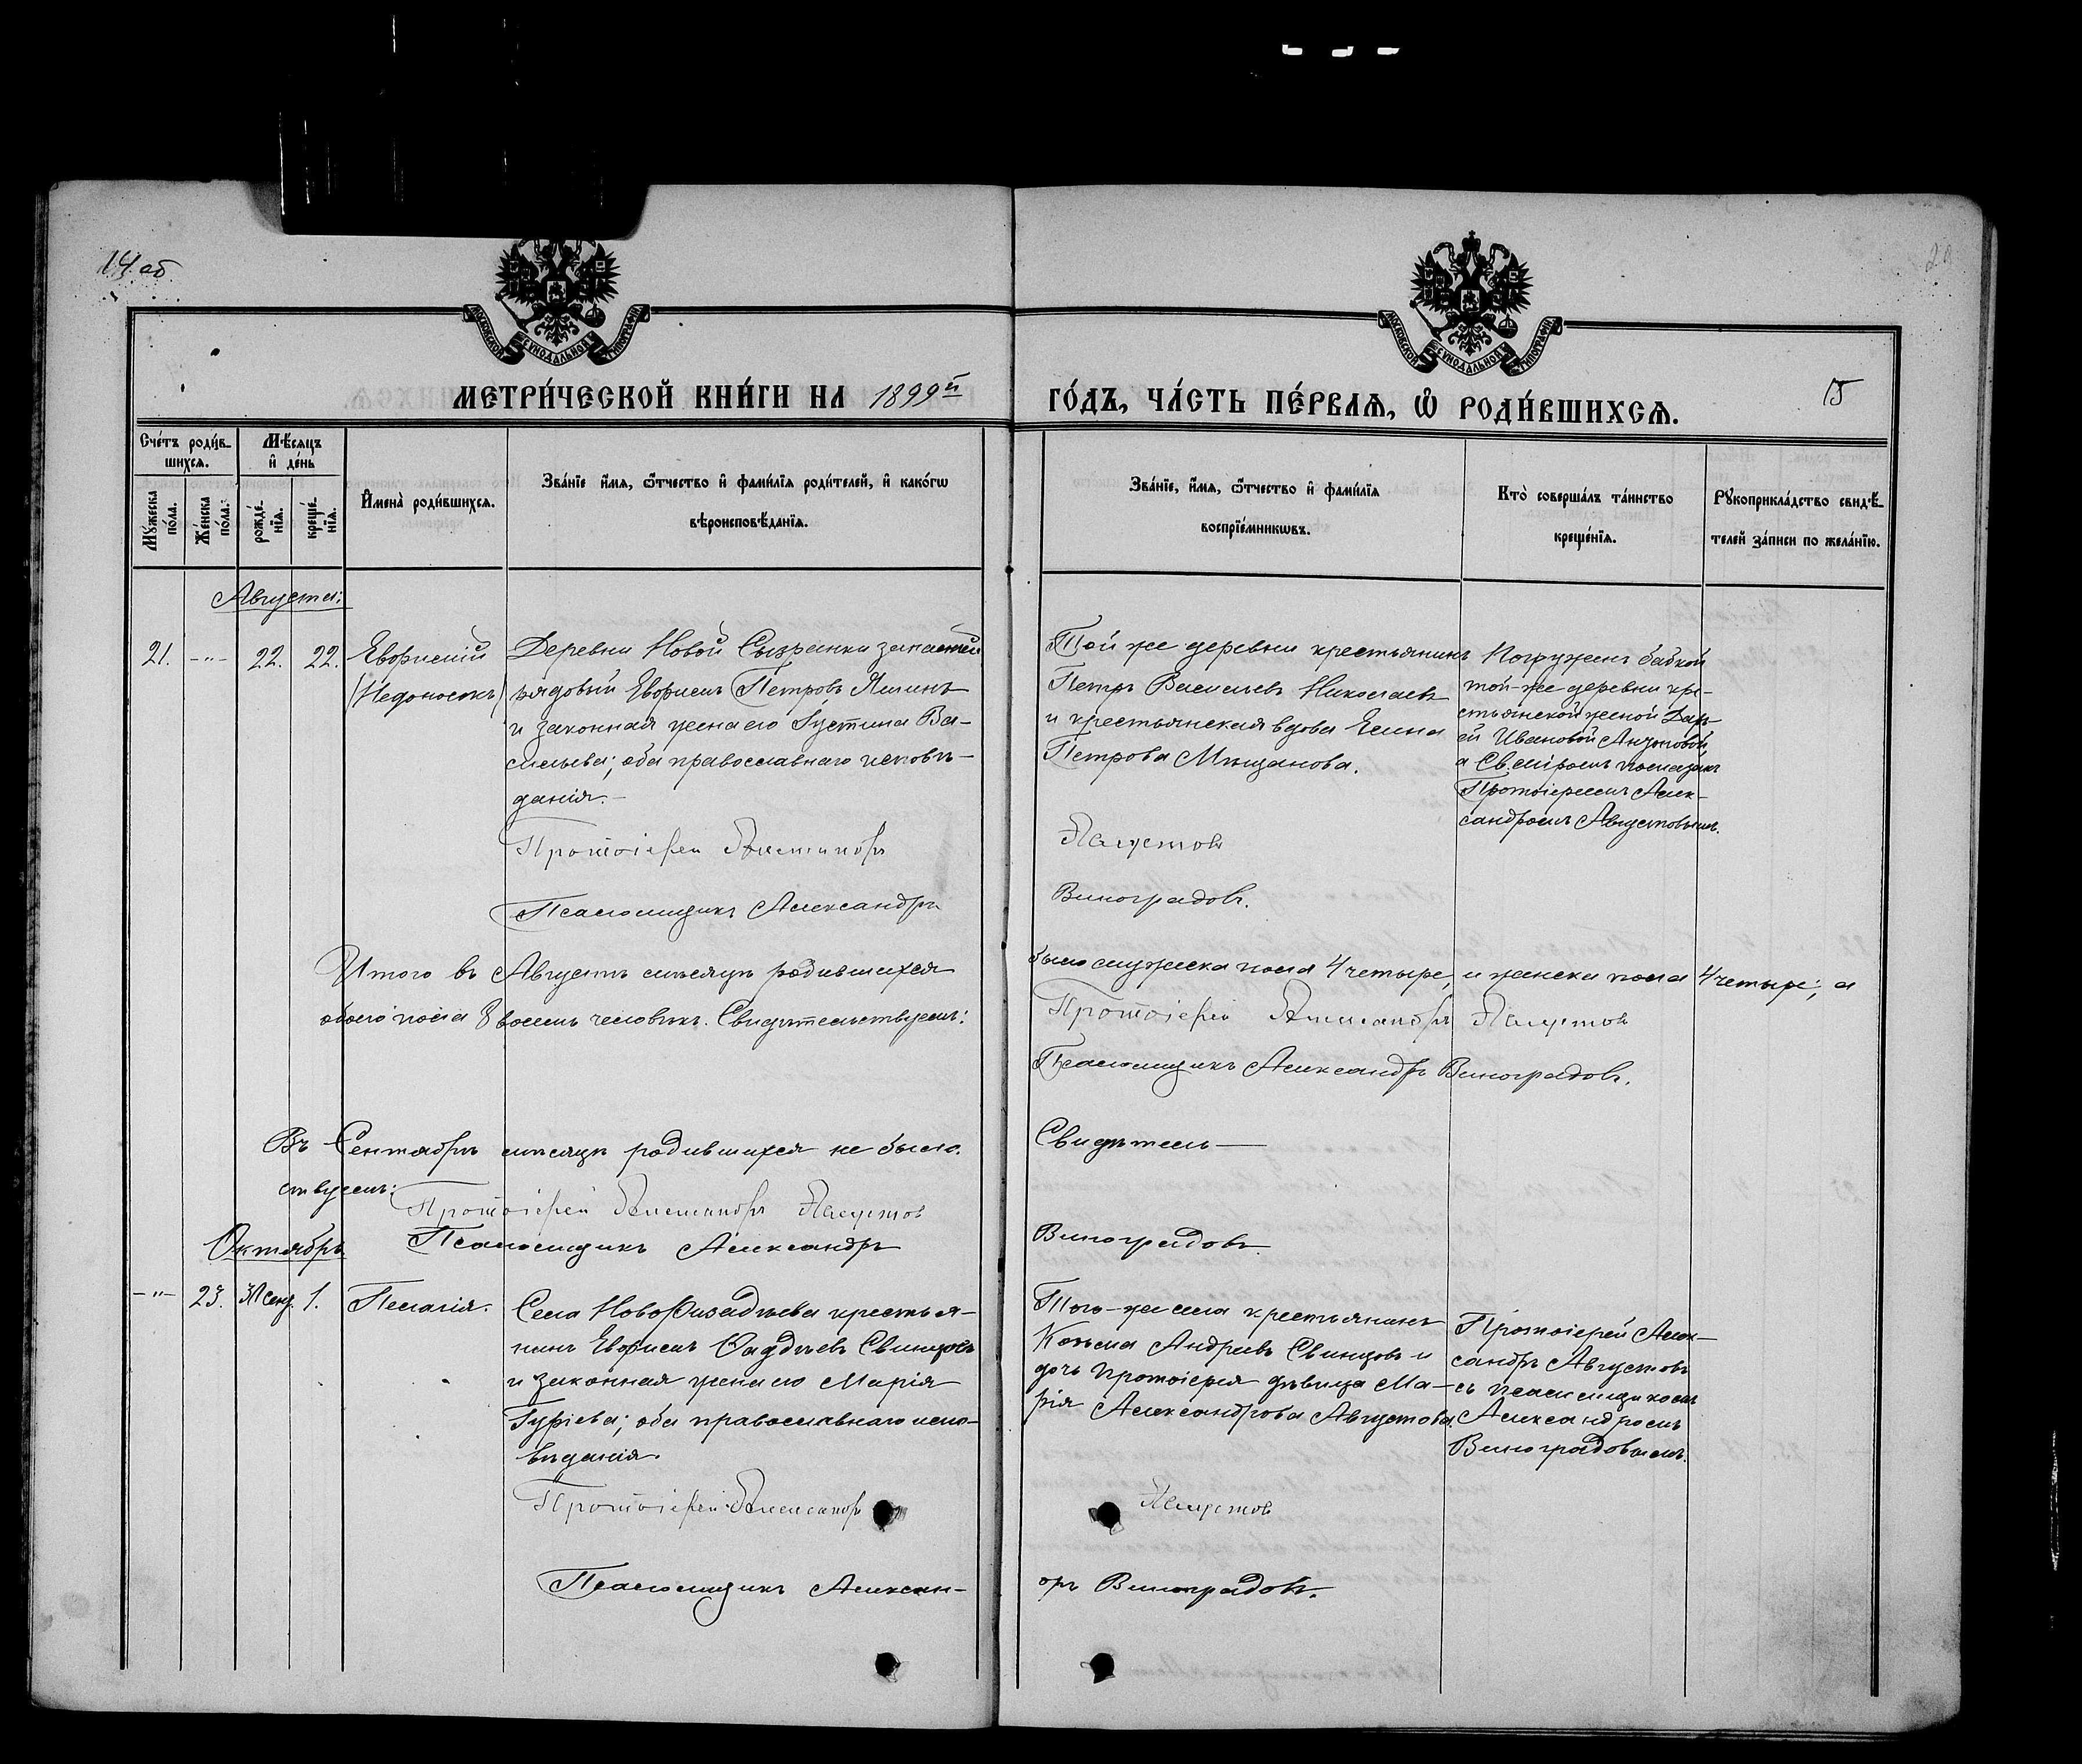 14 об
15
МЕТРИ́ЧЕСКОЙ КНИ́ГИ НА 1899й
ГО́ДЪ, ЧА́СТЬ ПЕ́РВАЯ, Ѡ РОДИ́ВШИХСЯ.
Сче́тъ роди́в-
шихся.
Мѣсяцъ
и де́нь
Му́жеска по́ла.
Же́нска по́ла.
рожде́-
нія.
креще́-
нія.
Имена̀ роди́вшихся.
Зва́ніе имя, ѻтчество и фами́лія роди́телей, и како́гѡ
вѣроисповѣданія.
Зва́ніе, имя, ѻтчество и фами́лія
воспріе́мникѡвъ.
Кто̀ соверша́лъ та́инство
креще́нія.
Рꙋкоприкла́дство свидѣ-
телей за́писи по жела́нію.
Августъ:
21. -"- 22. 22.
Евфимій
(Недоносокъ)
Деревни Новой Сызранки запасный
рядовый Евфимъ Петровъ Яшинъ
и законная жена его Іустина Ва-
сильева; оба православнаго исповѣ-
данія.-
Той же деревни крестьянинъ
Петръ Васильевъ Николаевъ
и крестьянская вдова Елена
Петрова Мѣщанова.
Погруженъ бабкой
той-же деревни кре-
стьянской женой Дарь-
ей Ивановой
а Св. мѵромъ помазанъ
Протоіереемъ Алек-
сандромъ Августовымъ.
Протоіерей Александръ
Августовъ
Псаломщикъ Александръ
Виноградовъ.
Итого въ Августѣ мѣсяцѣ родившихся
было мужеска пола 4 четыре, и женска пола 4 четыре; а
обоего пола 8 восемь человѣкъ. Свидѣтельствуемъ:
Протоіерей Александръ Августовъ
Псаломщикъ Александръ Виноградовъ.
Въ Сентябрѣ мѣсяцѣ родившихся не было.
Свидѣтель-
ствуемъ:
Протоіерей Александръ Августовъ
Псаломщикъ Александръ
Виноградовъ.
Октябрь
-"- 23. сент. 1.
Пелагія.
Села крестья-
нинъ Евфимъ Фаддѣевъ Свинцовъ
и законная жена его Марія
Гуріева; оба православнаго испо-
вѣданія.
Того-же села крестьянинъ
Козьма Андреевъ Свинцовъ и
дочь протоіерея дѣвица Ма-
рія Александрова Августова.
Протоіерей Алек-
сандръ Августовъ
съ псаломщикомъ
Александромъ
Виноградовымъ.
Протоіерей Александръ
Августовъ
Псаломщикъ Алексан-
дръ Виноградовъ.